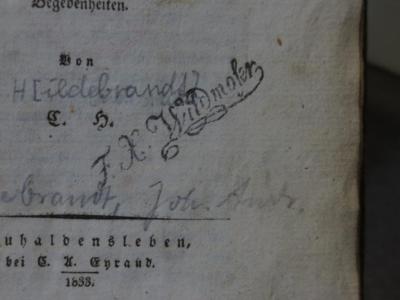 Begebenheiten.
Von
H[ildebrandt]
C. H.
F. X. Widmoser
ebrandt, Joh. Andr.
uhaldensleben,
bei C. A. Eyraud.
1833.